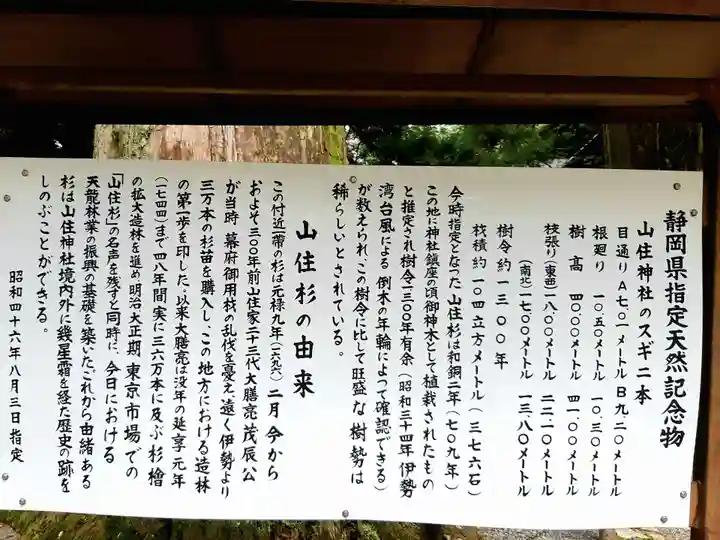 静岡県指定天然記念物
山住神社のスギ二本
目通り A七.〇一メートル B九.二〇メートル
根廻り 一〇.五〇メートル 一〇.三〇メートル
樹高 四〇.〇〇メートル 四一.〇〇メートル
枝張り(東西)一八.〇〇メートル 二二.一〇メートル
(南北)一七.〇〇メートル 一三.八〇メートル
樹令約一三〇〇年
材積約一〇四立方メートル(三七六石)
今時指定となった山住杉は和銅二年(七〇九年)
この地に神社鎮座の頃御神木として植栽されたもの
と推定され樹令一三〇〇年有余(昭和三十四年伊勢
湾台風による倒木の年輪によって確認できる)
が数えられ、この樹令に比して旺盛な樹勢は
稀らしいとされている。
山住杉の由来
この付近一帯の杉は元禄九年(一六九六)二月今から
およそ三〇〇年前山住家二十三代大膳亮茂辰公
が当時幕府御用材の乱伐を憂え、遠く伊勢より
三万本の杉苗を購入し、この地方における造林
の第一歩を印した。以来大膳亮は没年の延享元年
(一七四四)まで四八年間実に三六万本に及ぶ杉檜
の拡大造林を進め明治大正期東京市場での
「山住杉」の名声を残すと同時に、今日における
天龍林業の振興の基礎を築いた。これから由緒ある
杉は山住神社境内外に幾星霜を経た歴史の跡を
しのぶことができる。
昭和四十六年八月三日指定